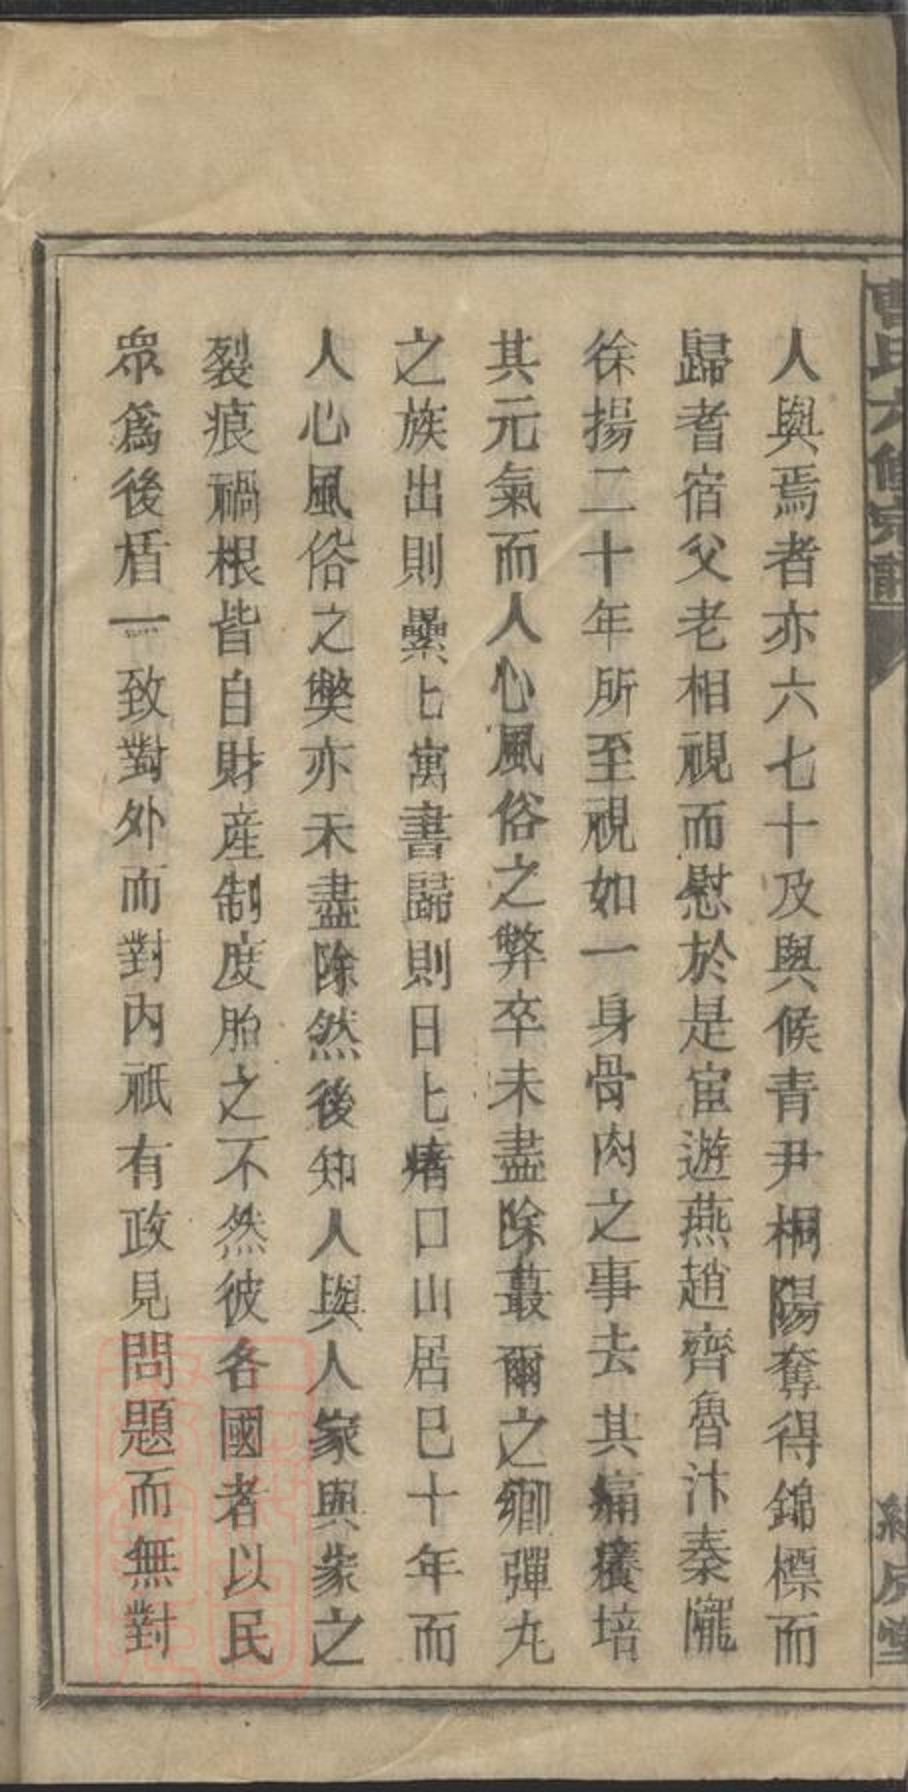 曹氏六修宗譜
人與焉者亦六七十及與候青尹桐陽奪得錦標而
歸耆宿父老相視而慰於是宦遊燕趙齊魯汴秦隴
徐揚二十年所至視如一身骨肉之事去其痛癢培
其元氣而人心風俗之弊卒未盡除蕞爾之鄉彈丸
之族出則纍上寓書歸則日上瘏口山居已十年而
人心風俗之獘亦未盡除然後知人與人家與家之
裂痕禍根皆自財産制度胎之不然彼各國者以民
眾爲後盾一致對外而對内祇有政見問題而無對